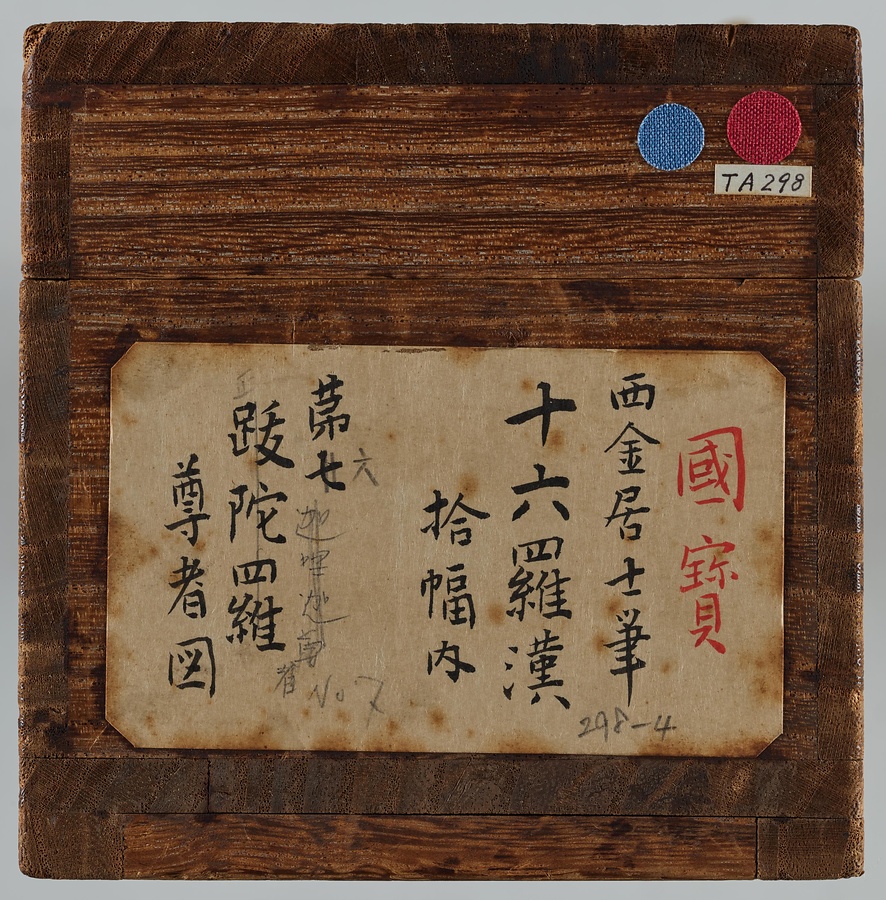 TA298
國寳
西金居士筆
十六羅漢
拾幅内
第七
六
迦哩迦尊者
No 7
跋陀羅
尊者図
298-4